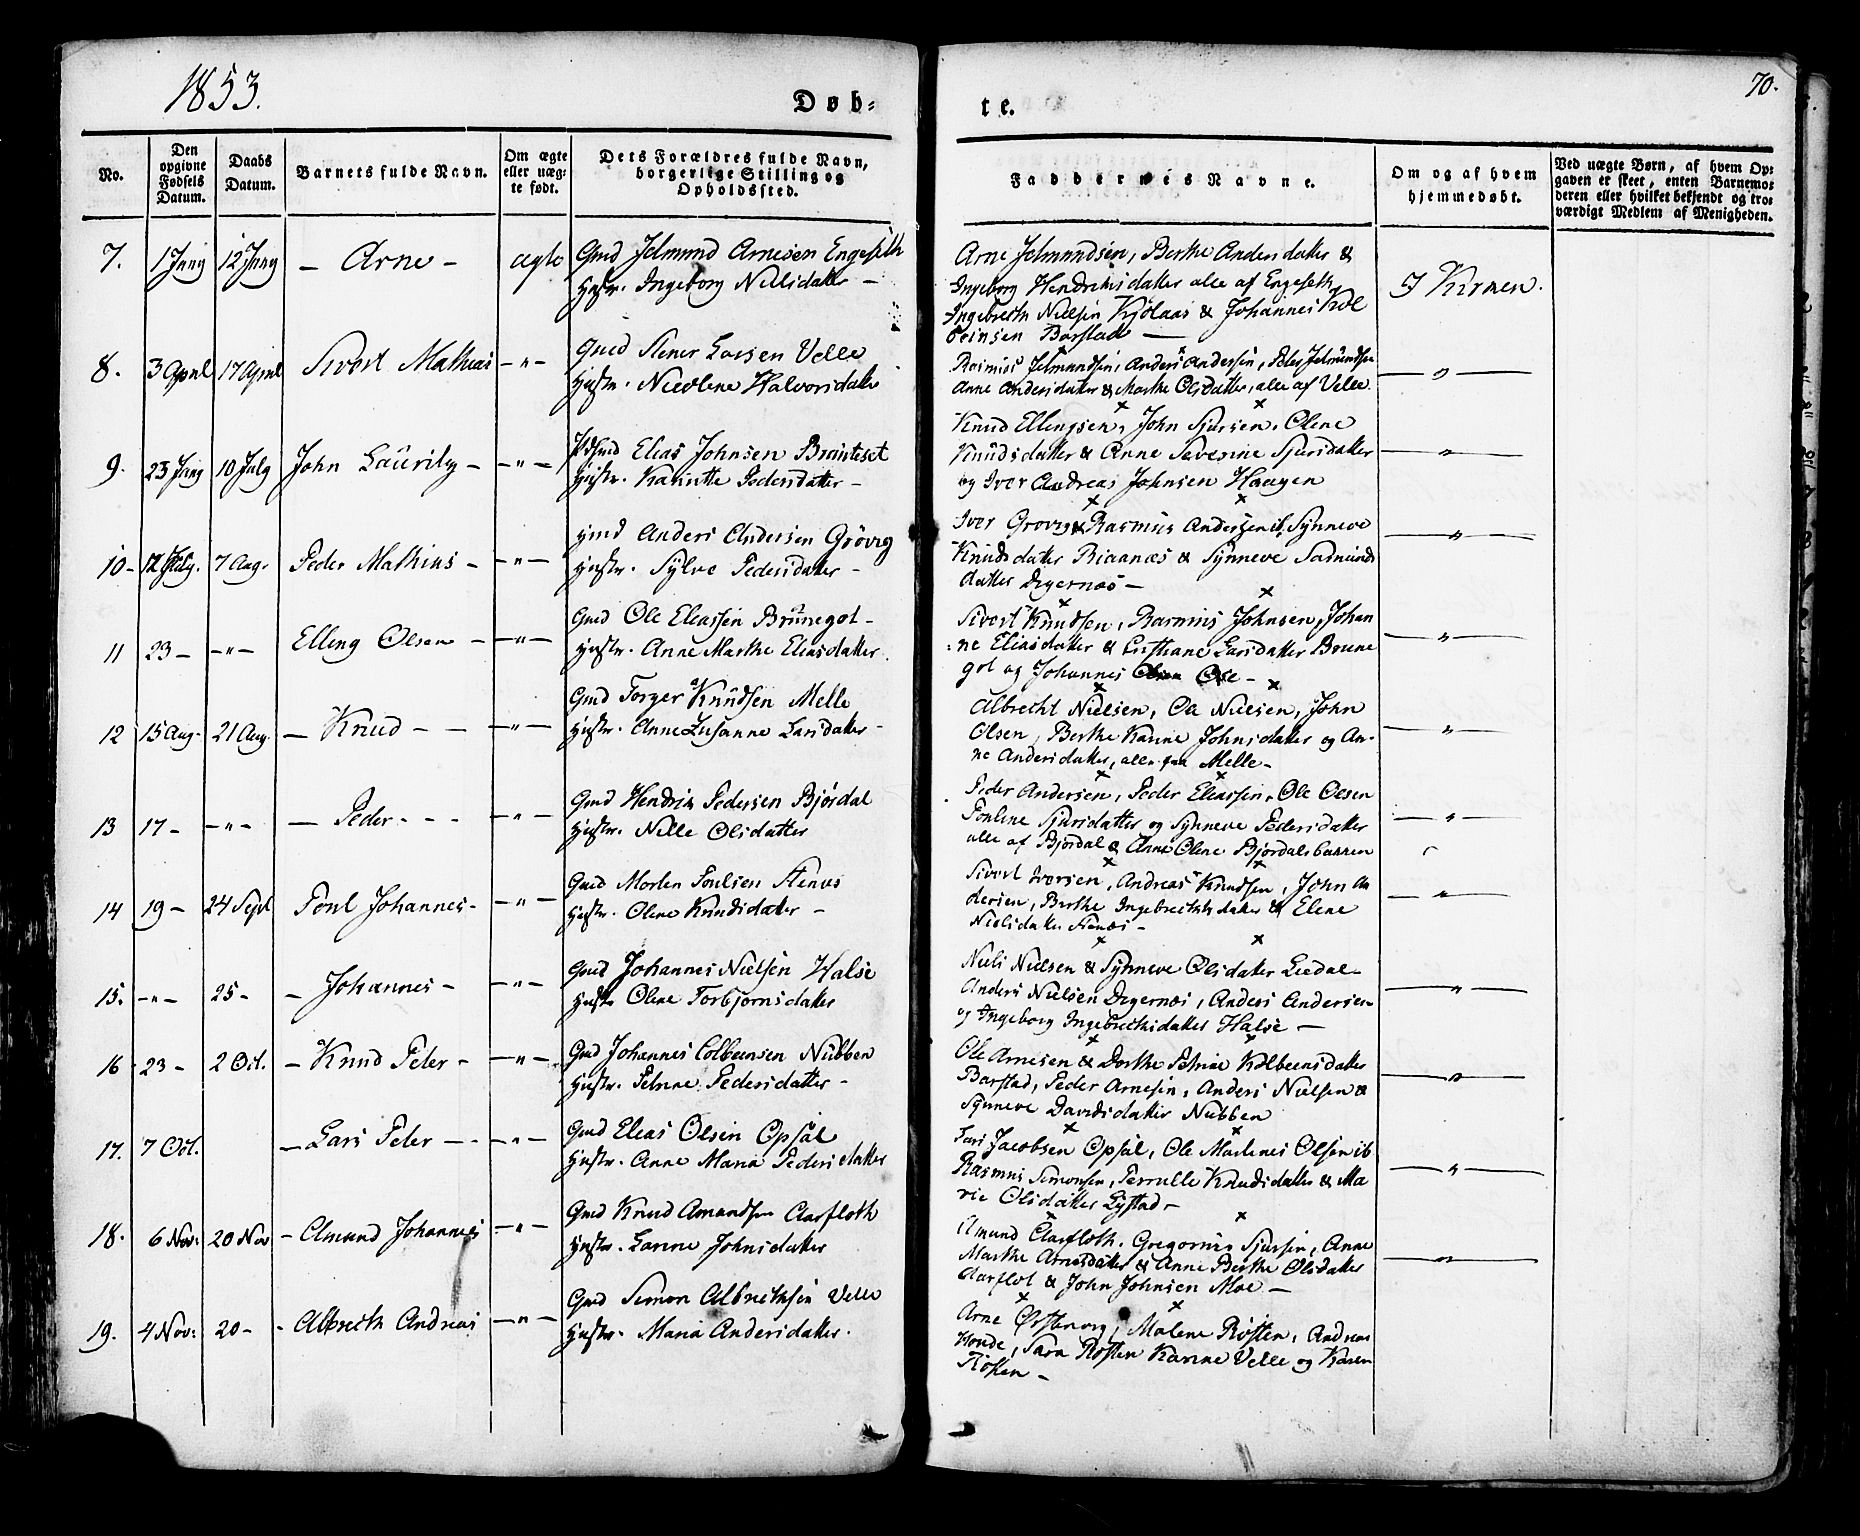 1853.
Døb-
te.
70.
No.
Den
opgivne
Fødsels
Datum.
Daabs
Datum.
Barnets fulde Navn.
Om ægte
eller uæg-
te født.
Dets Forældres fulde Navn,
borgerlige Stilling og
Opholdssted.
Faddernes Navne.
Om og af hvem
hjemmedøbt.
Ved uægte Børn, af hvem Op-
gaven er skeet, enten Barnemo-
deren eller hvilket bekjendt og tro-
værdigt Medlem af Menigheden.
7. 1 Juny 12 Juny – Arne – ægte Gmd Jetmund Arnesen Engeseth
Hustr. Ingeborg Nilsdatter –
Arne Jetmundsen, Berthe Andersdatter &
Ingeborg Hendriksdatter alle af Engeseth,
Ingebreth Nielsen Kjølaas & Johannes Kol
beinsen Barstad –
I Kirken.
8. 3 April 17 April Sivert Mathias – " – Gmd Stener Larsen Velle
Hustr. Nicoline Halvorsdatter
Rasmus Jetmundsen, Anders Andersen, Peder Jetmundsen
Anne Andersdatter & Marthe Olsdatter, alle af Velle.
– " –
9. 23 Juny 10 July John Lauritz – – " – Elias Johnsen Brauteset
Hustr. Karinthe Pedersdatter –
Knud Ellingsen, John Sjursen, Olene
Knudsdatter & Anne Severine Sjursdatter
og Iver Andreas Johnsen Haagen
– " –
10 – July. 7 Aug. Peder Mathias – – " – Gmd Anders Andersen Grøvig
Hustr. Sylve Pedersdatter –
Iver Grøvig & Rasmus Andersen ib, Synneve
Knudsdatter Riaanæs & Synneve Salmunds
datter Digernæs –
– " –
11 23 – – " – Elling Olsen – – " – Gmd Ole Eliassen Brunegot –
Hustr. Anne Marthe Eliasdatter.
Sivert Knudsen, Rasmus Johnsen, Johan
ne Eliasdatter & Larsdatter Brune
got og Johannes Ose –
– " –
12 15 Aug. 21 Aug. – Knud – – – " – Gmd Torger Knudsen Melle
Hustr. Anne Susanne Larsdatter –
Albrecht Nielsen, Ole Nielsen, John
Olsen, Berthe Karine Johnsdatter og An-
ne Andersdatter, alle fra Melle –
– " –
13 17 – – " – – Peder – – – – " – Gmd Hendrik Pedersen Bjørdal
Hustr. Nille Olsdatter
Peder Andersen, Peder Eliassen, Ole Olsen
Pouline Sjursdatter og Synneve Pedersdatter
alle af Bjørdal & Anne Oline Bjørdalsbakken
– " –
14 19 – 24 Sept Poul Johannes – – " – Gmd Morten Poulsen Stenes
Hustr. Oline Knudsdatter –
Sivert Iversen, Andreas Knudsen, John An
dersen, Berthe Ingebrethsdatter & Elene
Nielsdatter Stenæs –
– " –
15. – " – 25 – – Johannes – – " – Gmd Johannes Nielsen Halse
Hustr Oline Torbjørnsdatter
Niels Nielsen & Synneve Olsdatter Liedal –
Anders Nielsen Digernæs, Anders Andersen
og Ingeborg Ingebrethsdatter Halse –
– " –
16 23 – 2 Oct. – Knud Peter – – " – Gmd Johannes Colbensen Nubben
Hustr. Petrine Pedersdatter –
Ole Arnesen & Dorthe Petrine Kolbeensdatter
Barstad, Peder Arnesen, Anders Nielsen &
Synneve Davidsdatter Nubben
– " –
17. 7 Oct. – Lars Peter – – – " – Gmd Elias Olsen Opsal
Hustr. Anne Maria Pedersdatter
Lars Jacobsen Opsal, Ole Martinus Olsen ib
Rasmus Simonsen, Pernille Knudsdatter & Ma
rie Olsdatter Lystad –
– " –
18. 6 Nov: 20 Nov – Amund Johannes – " – Gmd Knud Amundsen Aarfloth
Hustr. Larine Johnsdatter
Amund Aarfloth, Gregorius Sjursen, Anne
Marthe Arnesdatter & Anne Berthe Olsdatter
Aarflot & John Johnsen Moe –
– " –
19. 4 Nov: 20 – – Albreth Andreas – " – Gmd Simon Albrethsen Velle
Hustr. Maria Andersdatter.
Arne Ørstenvig, Malene Røsten, Andreas
Honde, Sara Røsten Karine Velle og Karen
Røsten –